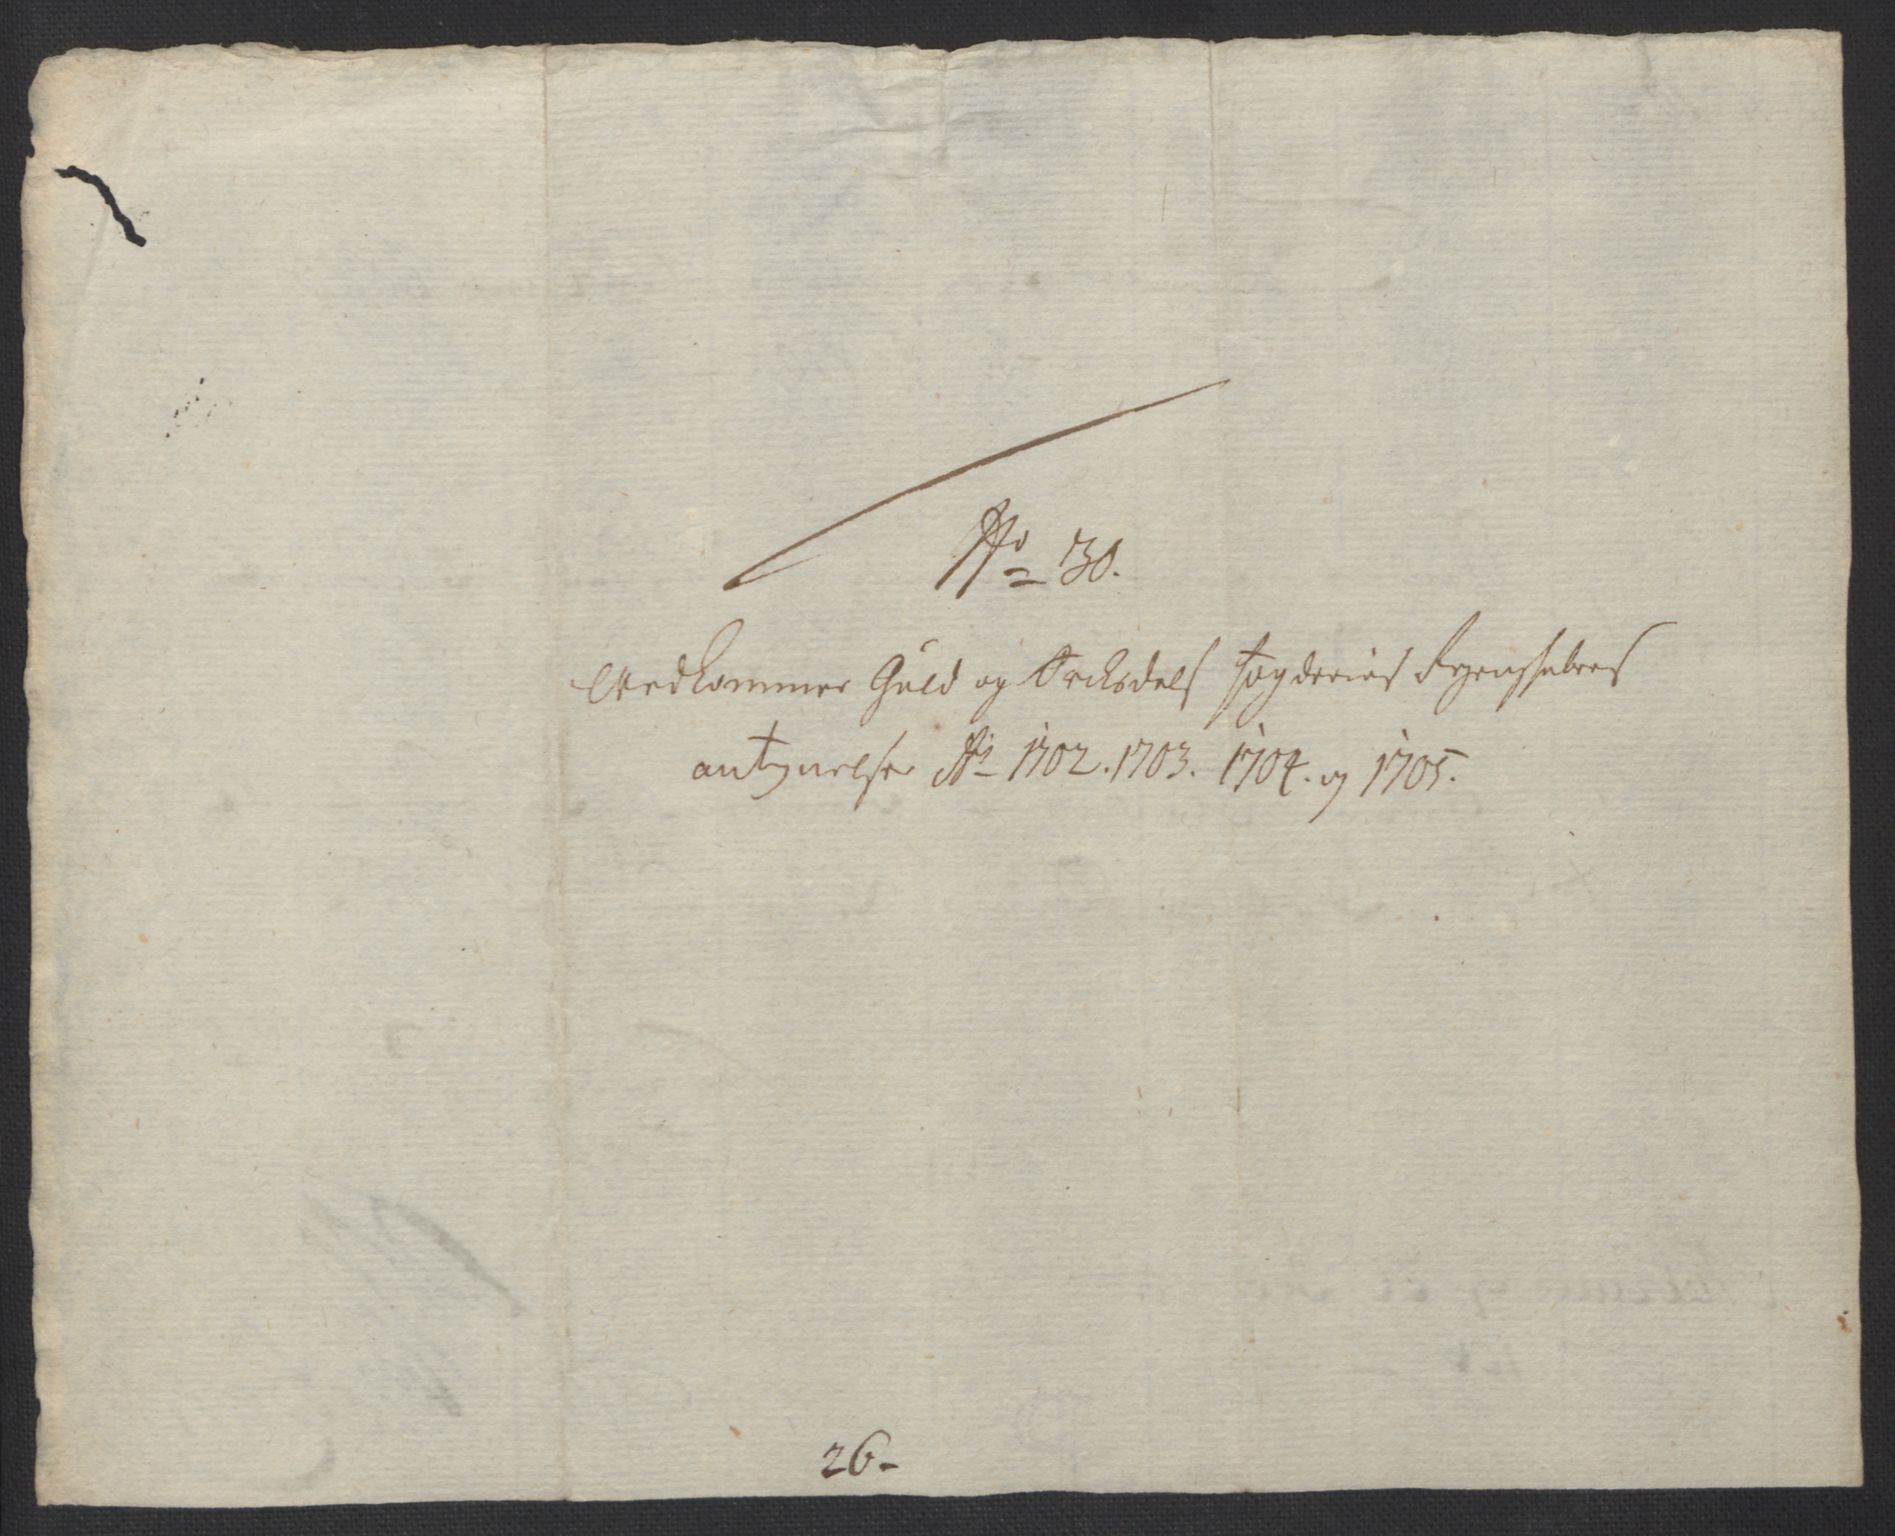 No 30.
Vedkommer Guld og Orchedals fogderies Regenschabers
antegnelser Ao 1702. 1703. 1704. og 1705.
26-